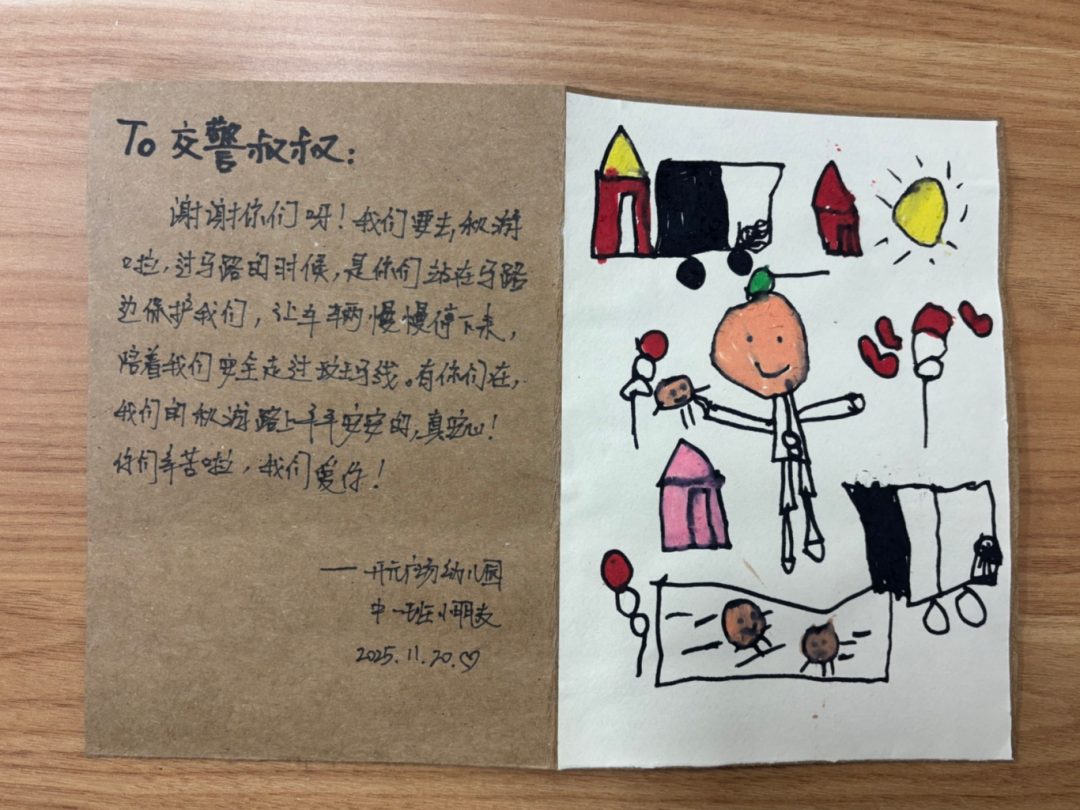 To 交警叔叔：
谢谢你们呀！我们要去秋游
啦，过马路的时候，是你们站在马路
边保护我们，让车辆慢慢停下来，
陪着我们安全走过斑马线。有你们在，
我们的秋游路上平平安安的，真安心！
你们辛苦啦，我们爱你！
——开元广场幼儿园
中一班小朋友
2025.11.20.♡